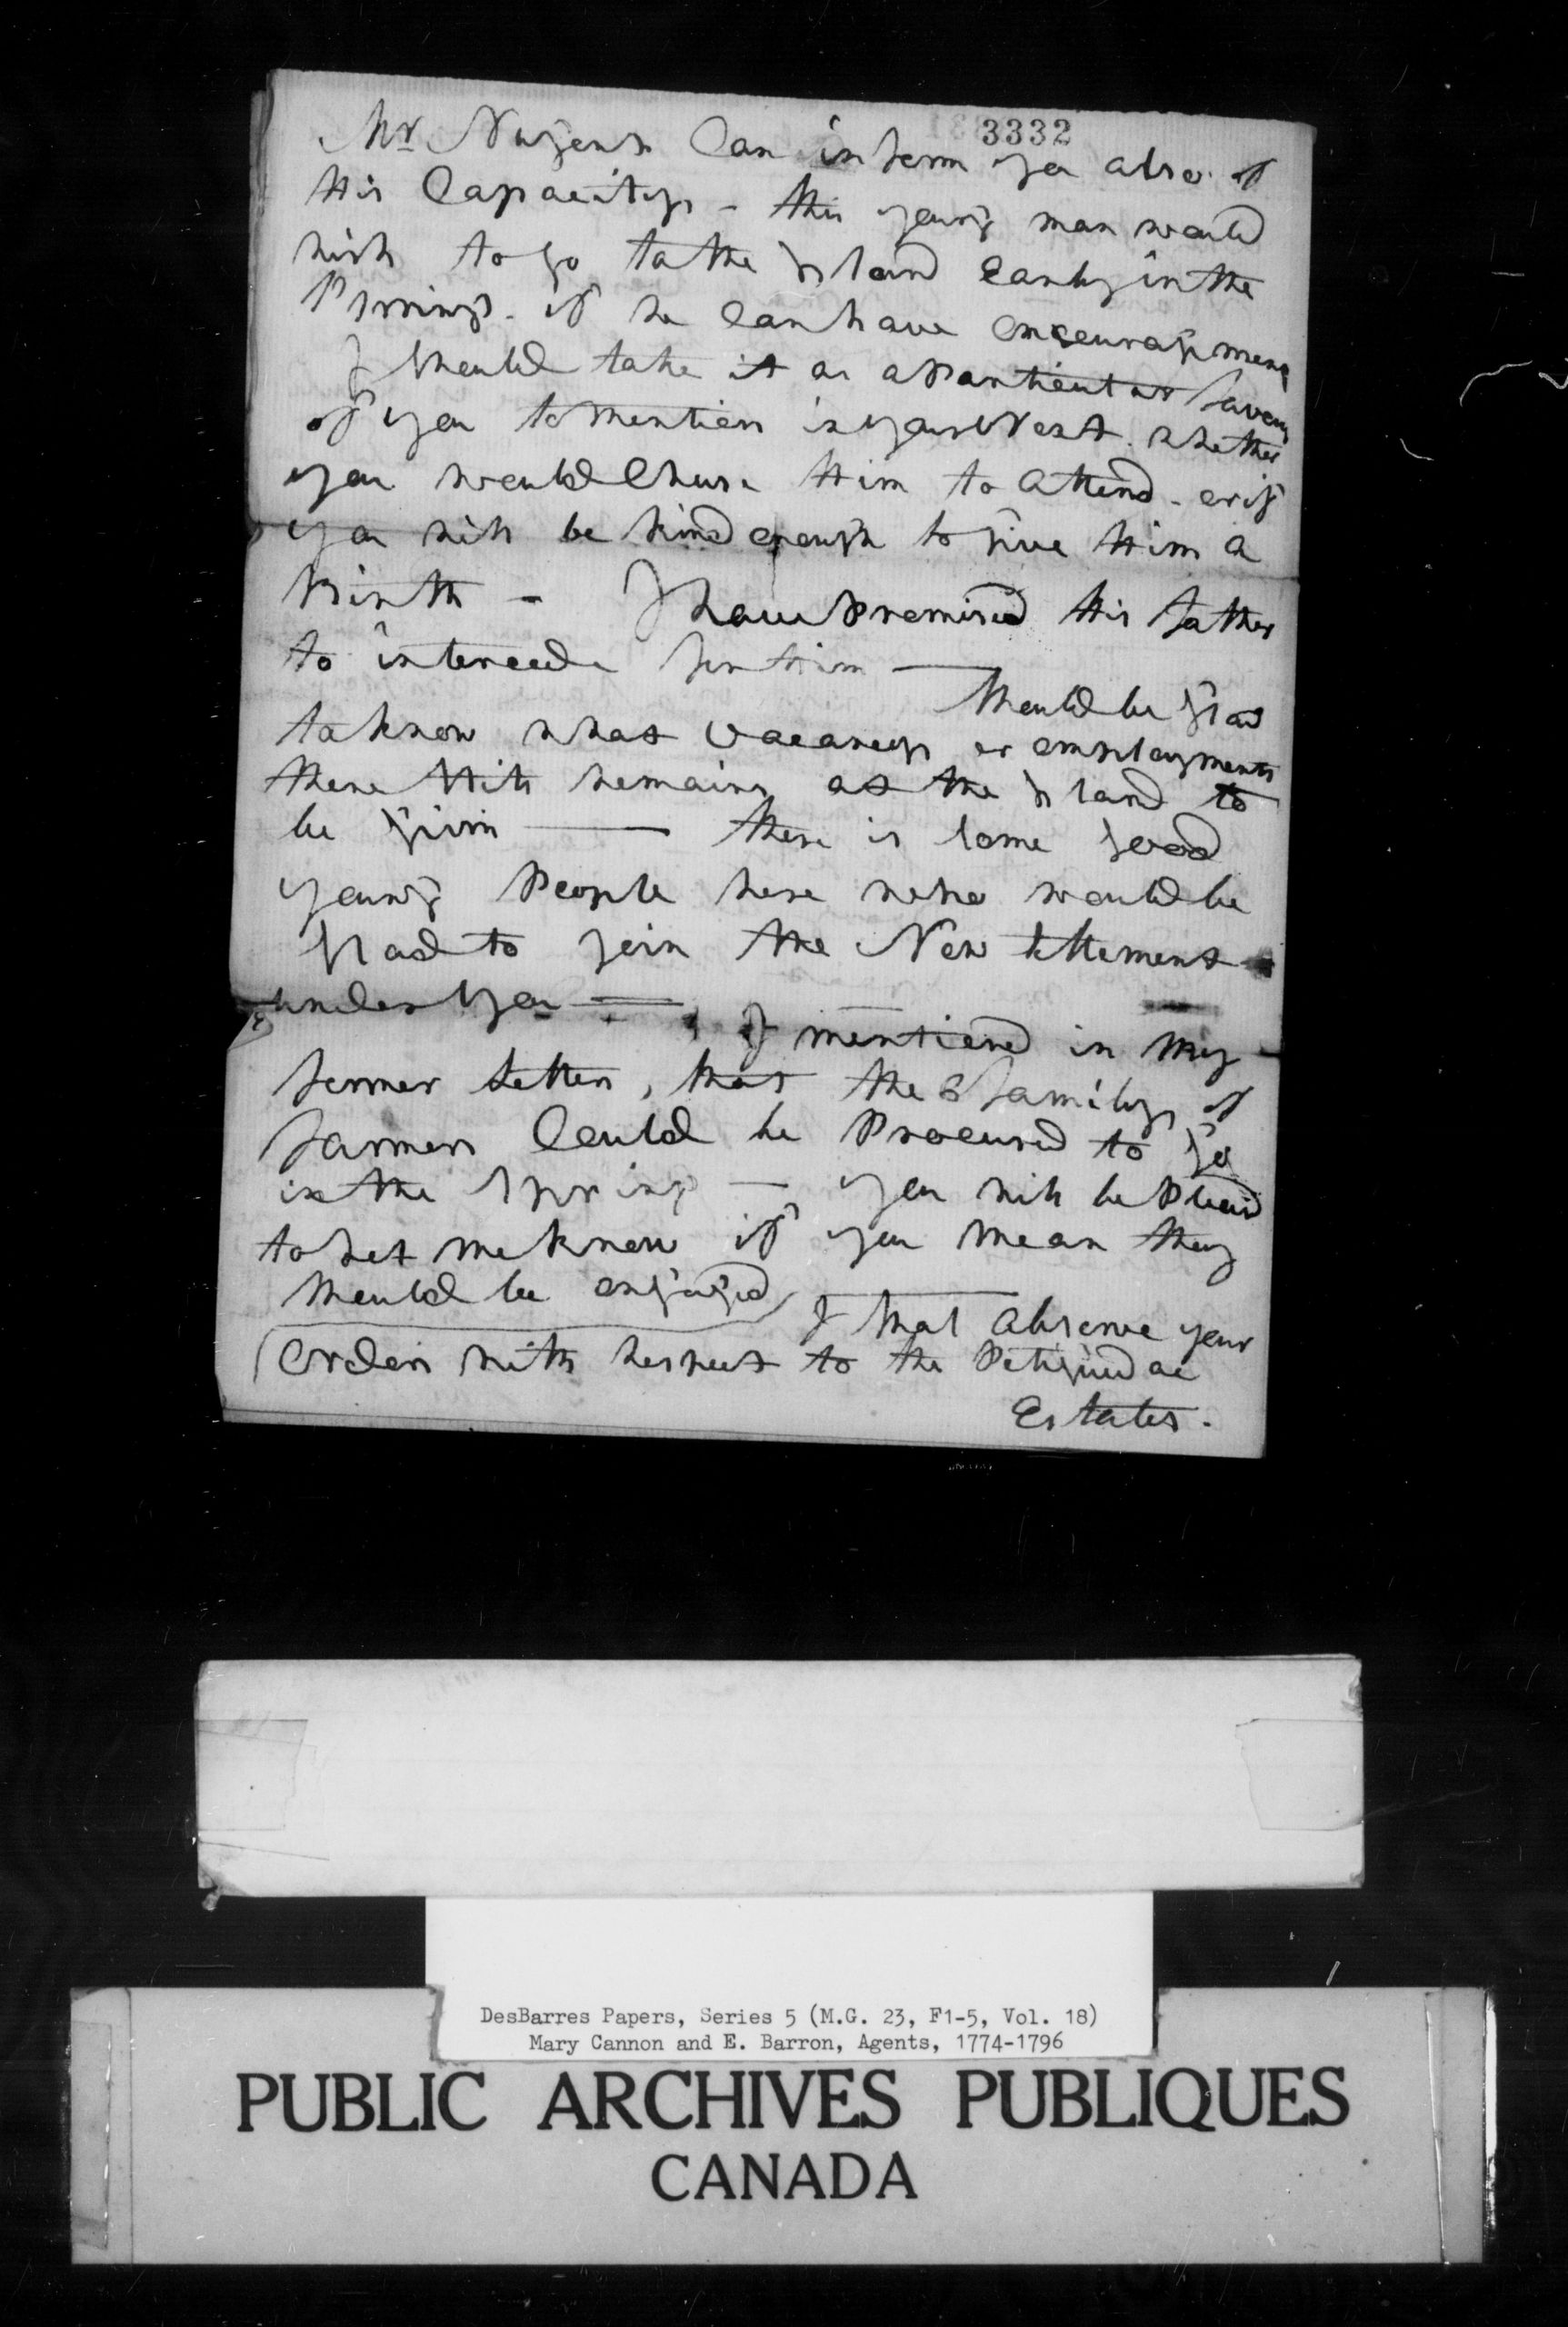 3332
Mr Nugent Can inform you also of
His Capacity - this young man would
wish to go to the Island Early in the
Spring - if he Can have encouragement
I should take it as a Particular favour
of you to Mention in your Next. whether
you would Chuse Him to Attend - or if
you will be kind enough to give Him a
Birth - I have Promised His father
to intercede for Him -
Should be glad
to know what Vacancy or employments
there still remains at the Island to
be given - there is some good
young People here who would be
glad to join the New settlement
under you -
I mentiond in my
former Letter, that the 3 family of
farmers Could be Procured to go
in the Spring - you will be Pleasd
to let me know if you mean they
should be engaged I shal Observe your
Orders with respect to the
Estates.
DesBarres Papers, Series 5 (M.G. 23, F1-5, Vol. 18)
Mary Cannon and E. Barron, Agents, 1774-1796
PUBLIC ARCHIVES PUBLIQUES
CANADA